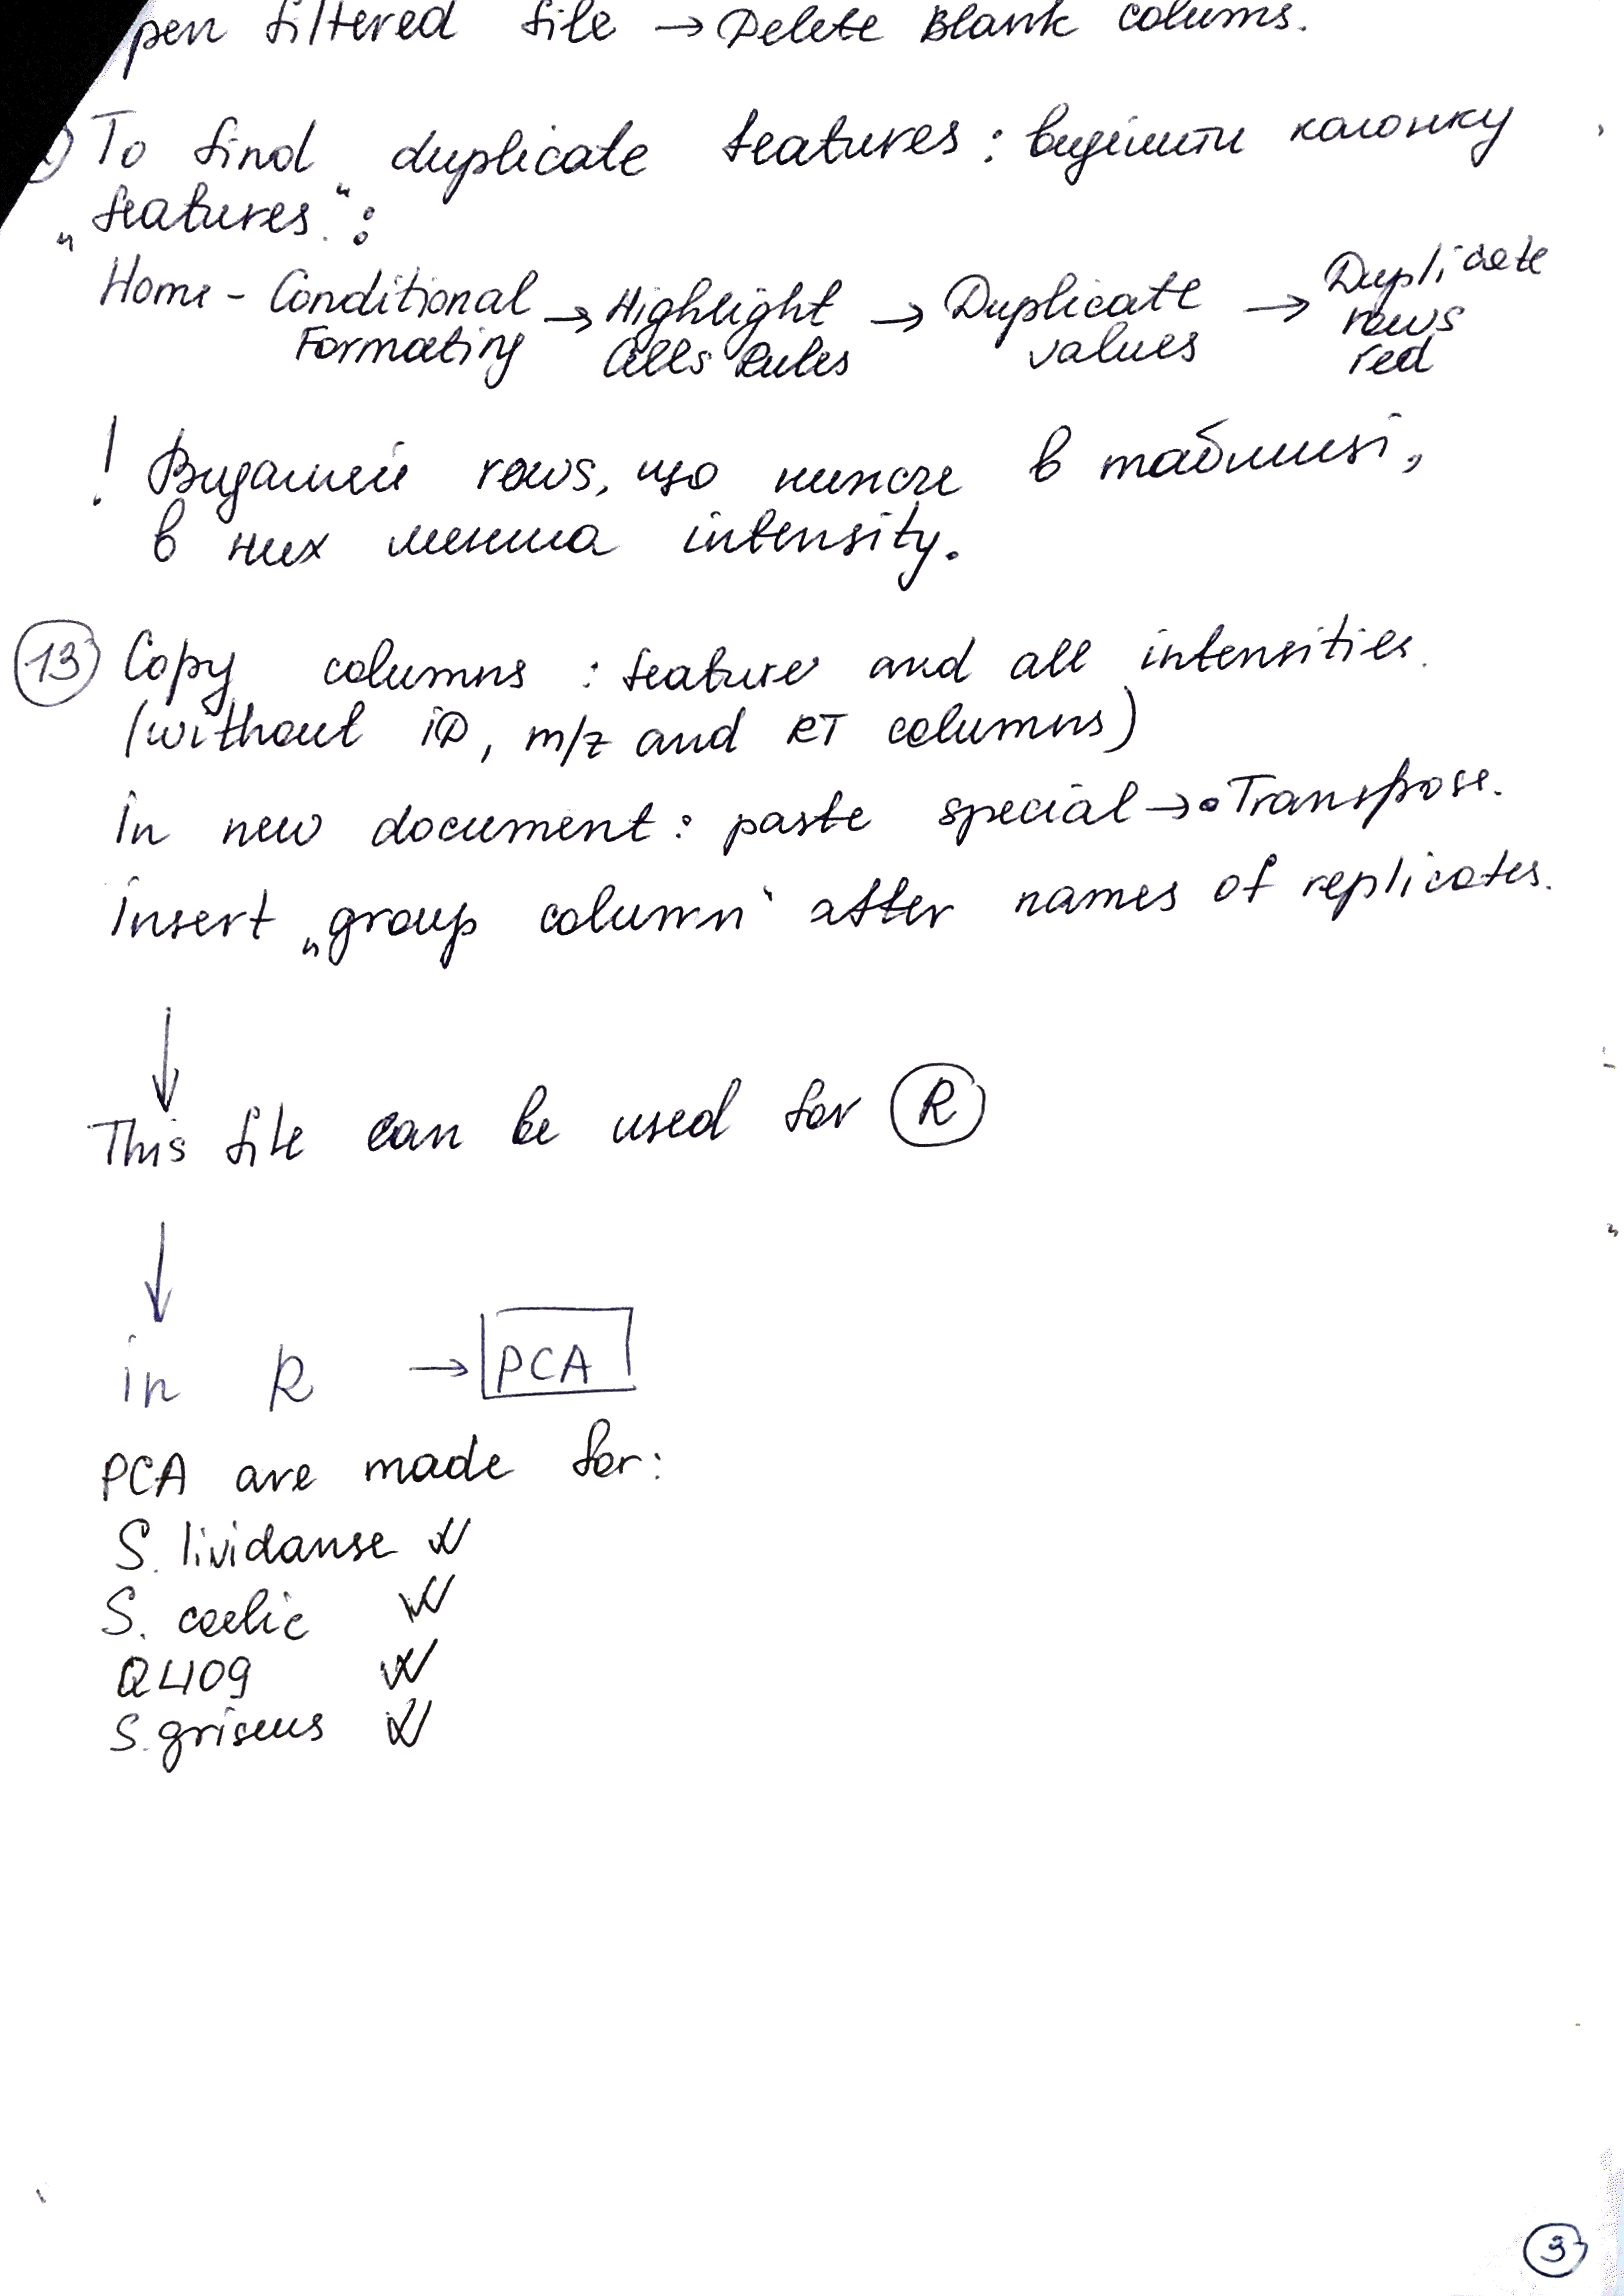 pen filtered file → Delete Blank colums.
To find duplicate features: виділити колонку
„features":
Home - Conditional Formating → Highlight Cells Rules → Duplicate values → Duplicate rows red
! Видаляй rows, що нижче в таблиці,
в них менша intensity.
13 Copy columns: feature and all intensities.
(without iD, m/z and RT columns)
In new document: paste special → • Transpose.
Insert „group column" after names of replicates.
↓
This file can be used for R
↓
in R → PCA
PCA are made for:
S. lividanse
S. coelic
Q409
S. griseus
3